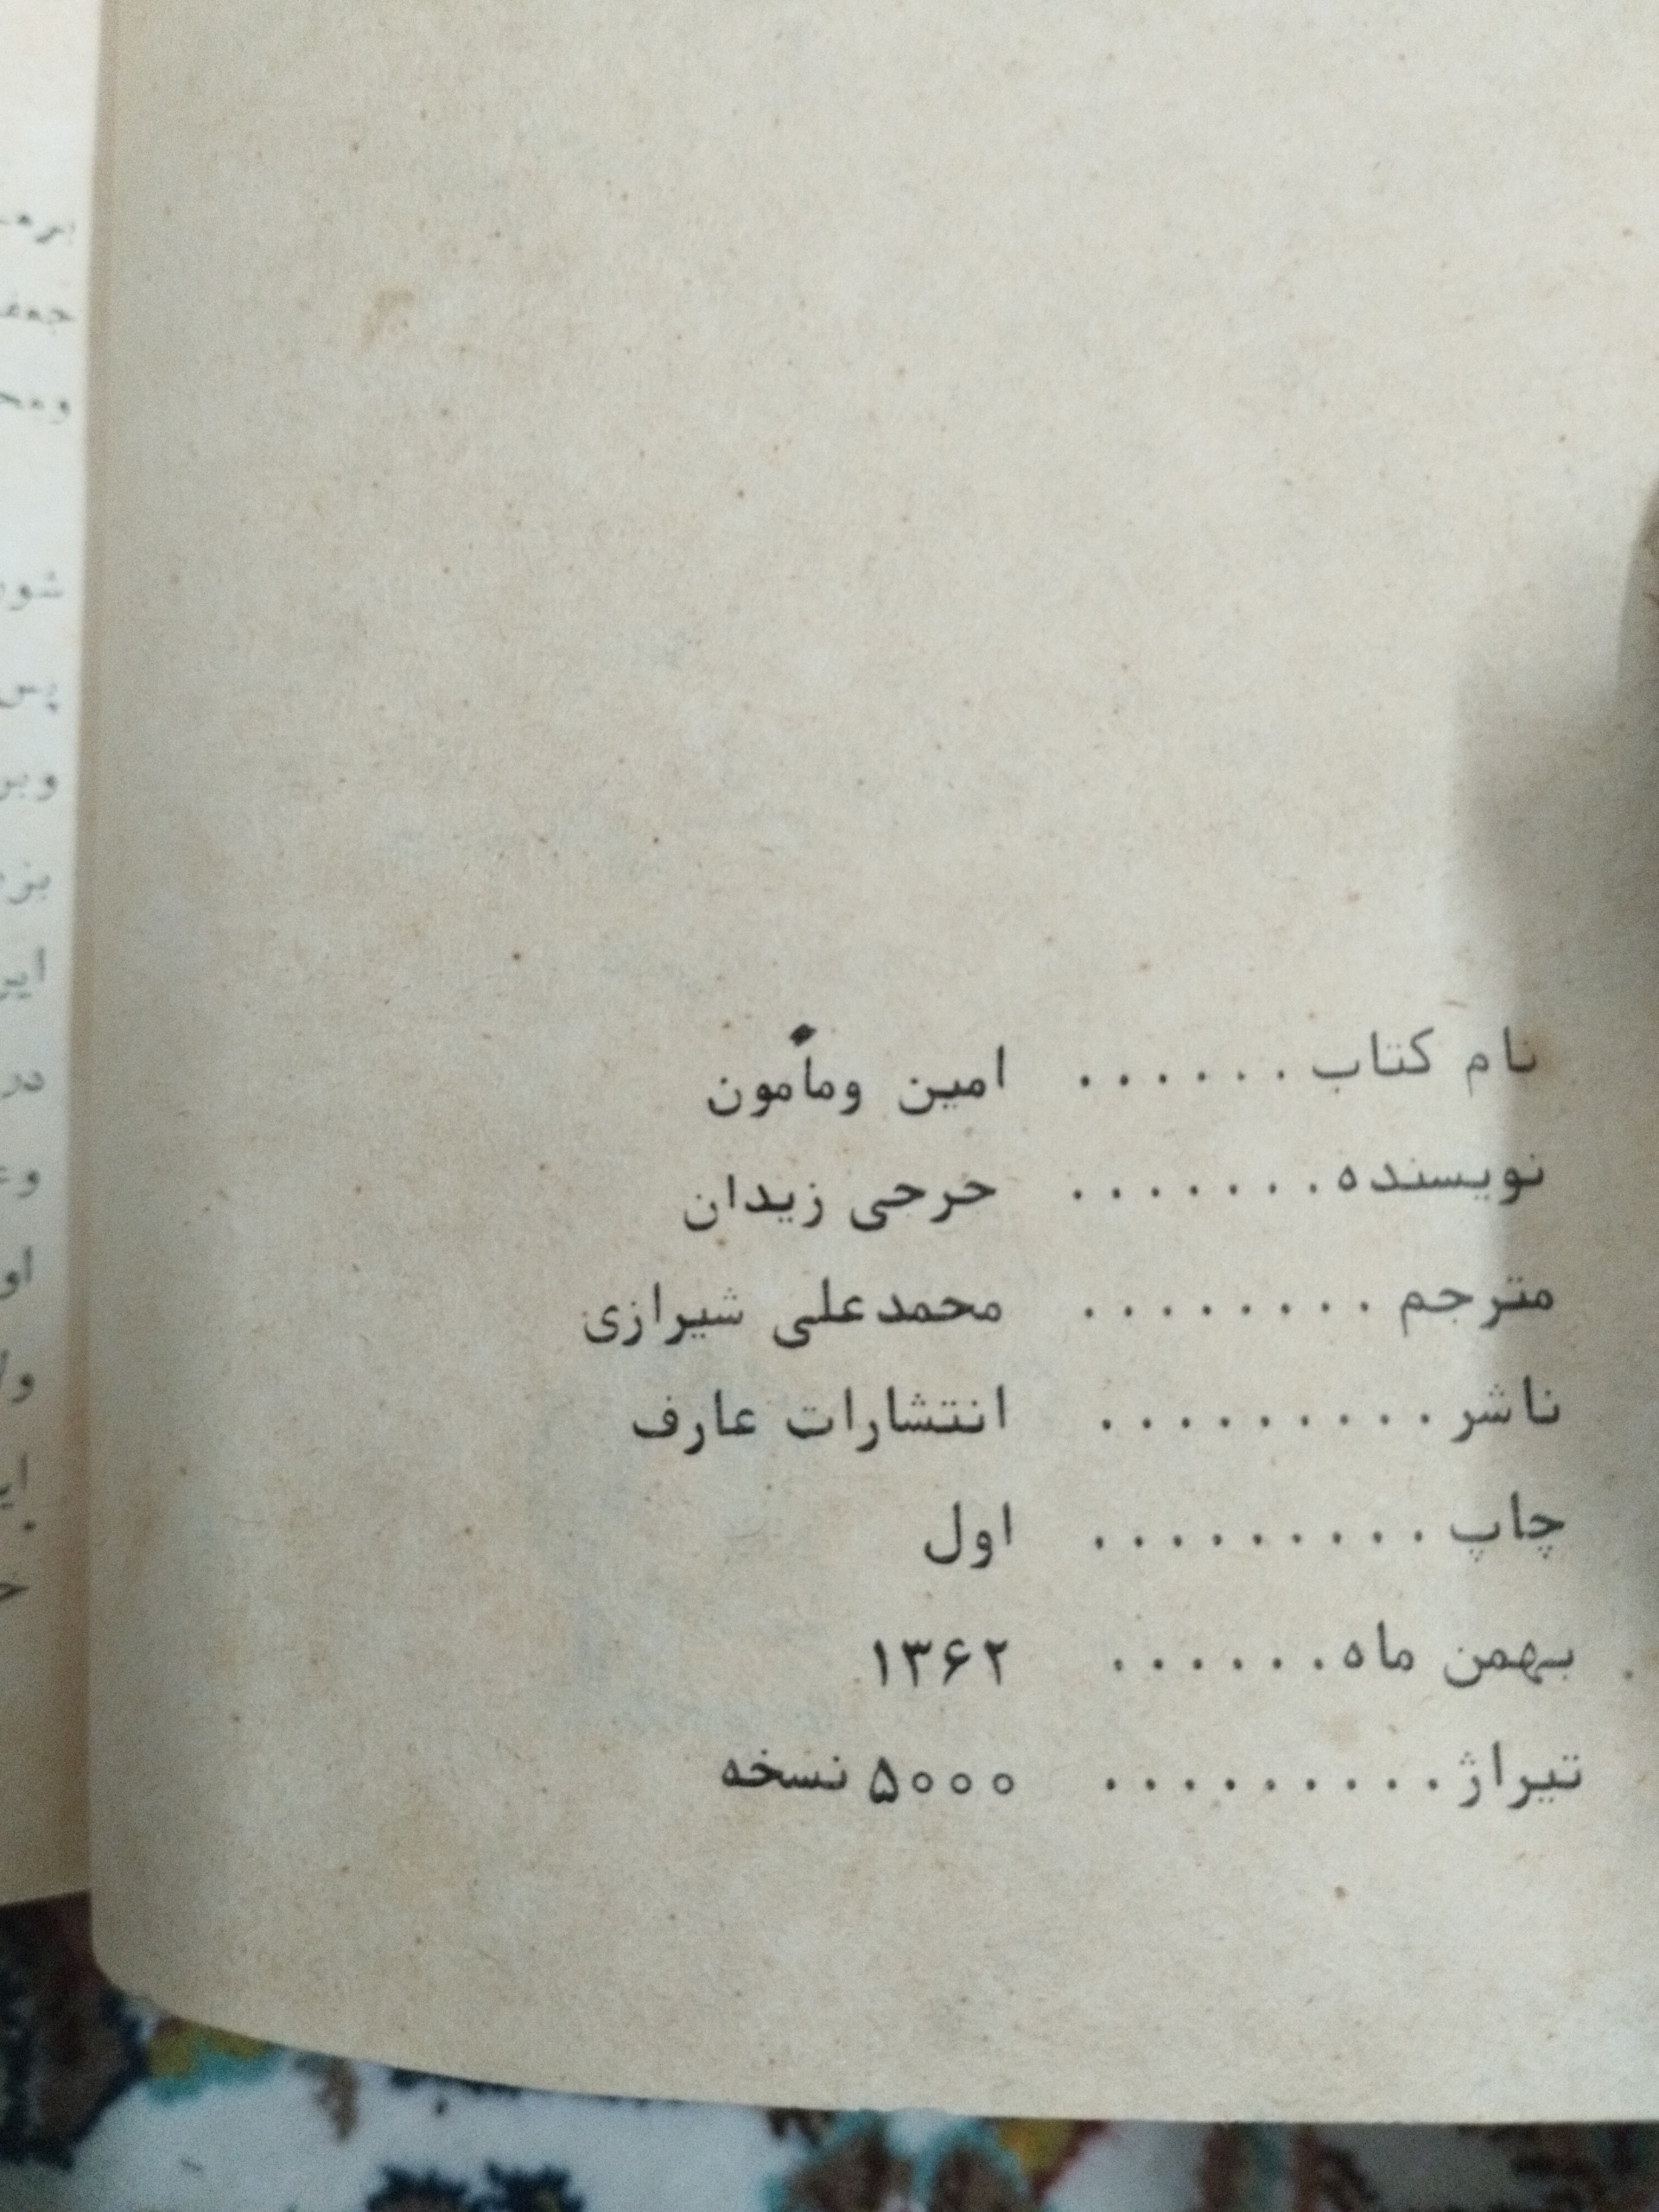 نام کتاب ...... امین ومأمون
نویسنده ....... حرحی زیدان
مترجم ........ محمدعلی شیرازی
ناشر ......... انتشارات عارف
چاپ ......... اول
بهمن ماه ...... ۱۳۶۲
تیراژ ......... ۵۰۰۰ نسخه